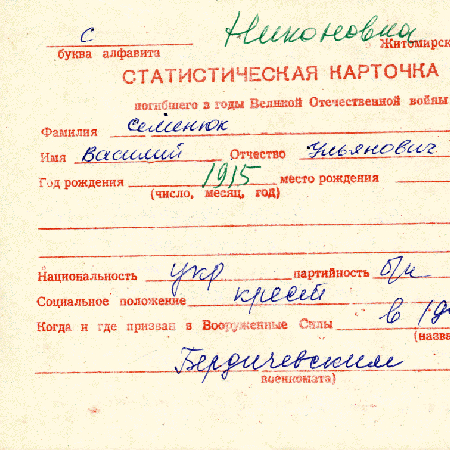 С Никоновка
буква алфавита Житомирск
СТАТИСТИЧЕСКАЯ КАРТОЧКА
погибшего в годы Великой Отечественной войны
Фамилия Семенюк
Имя Василий Отчество Ульянович
Год рождения 1915 место рождения
(число, месяц, год)
Национальность укр партийность б/п
Социальное положение крест
Когда и где призван в Вооруженные Силы в 19
(назва
Бердичевским
военкомата)